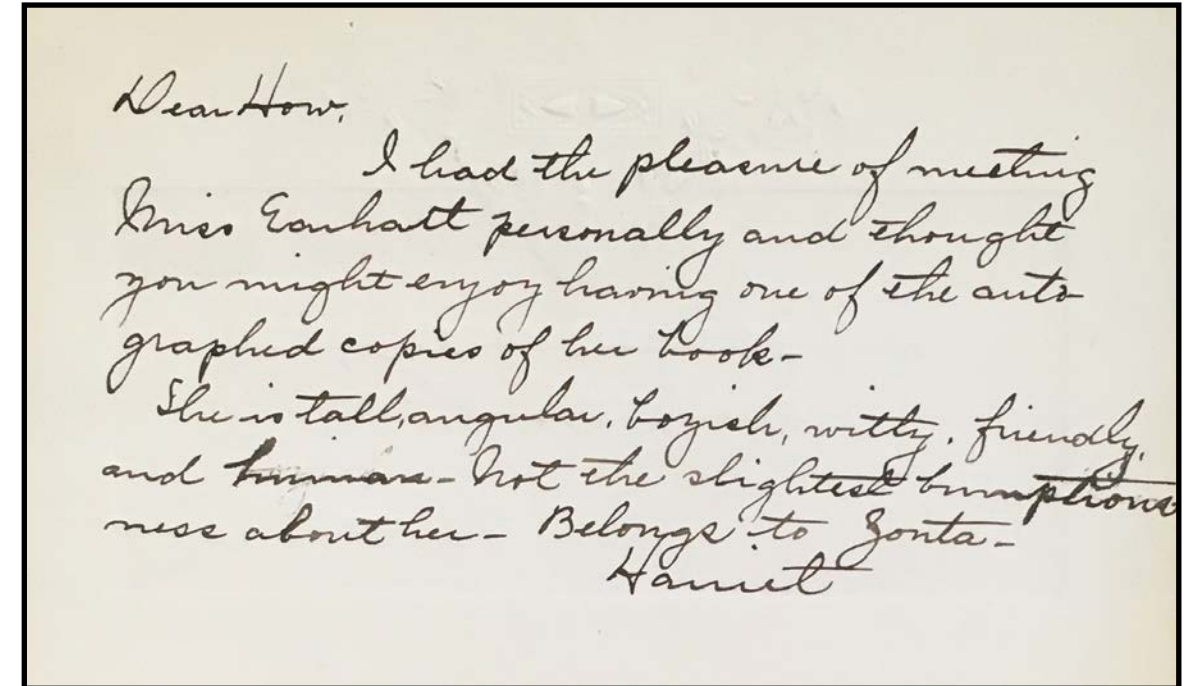 Dear How,
I had the pleasure of meeting
Miss Earhart personally and thought
you might enjoy having one of the auto
graphed copies of her book-
She is tall, angular, boyish, witty, friendly,
and human- Not the slightest bumptious
ness about her- Belongs to Zonta-
Harriet